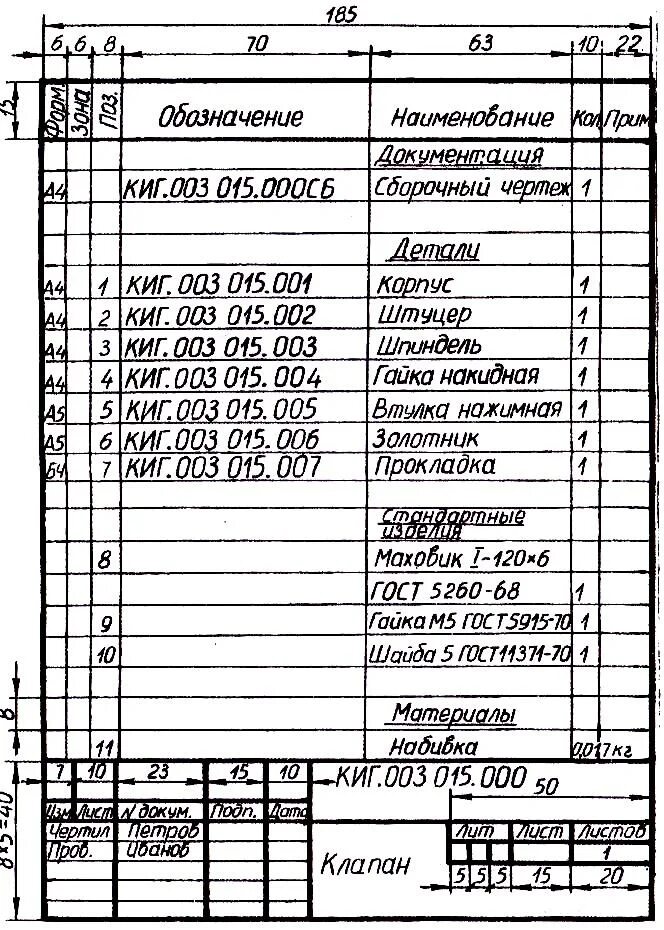 185
6 6 8 70 63 10 22
15
Форм. Зона Поз. Обозначение Наименование Кол Прим
Документация
А4 КИГ.003 015.000СБ Сборочный чертеж 1
Детали
А4 1 КИГ.003 015.001 Корпус 1
А4 2 КИГ.003 015.002 Штуцер 1
А4 3 КИГ.003 015.003 Шпиндель 1
А4 4 КИГ.003 015.004 Гайка накидная 1
А5 5 КИГ.003 015.005 Втулка нажимная 1
А5 6 КИГ.003 015.006 Золотник 1
БЧ 7 КИГ.003 015.007 Прокладка 1
Стандартные
изделия
8 Маховик I-120×6
ГОСТ 5260-68 1
9 Гайка М5 ГОСТ5915-70 1
10 Шайба 5 ГОСТ11371-70 1
8
Материалы
11 Набивка 0,017кг
7 10 23 15 10 КИГ.003 015.000
50
8×5=40
Изм Лист N докум. Подп. Дата
Чертил Петров Лит Лист Листов
Пров. Иванов 1
Клапан
5 5 5 15 20